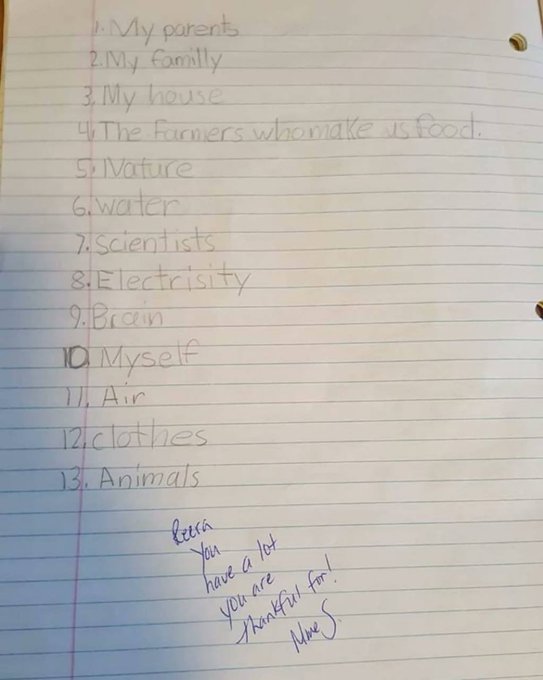 1. My parents
2. My familly
3. My house
4. The Farmers who make us food.
5. Nature
6. water
7. Scientists
8. Electrisity
9. Brain
10 Myself
11. Air
12. clothes
13. Animals
You
have a lot
you are
thankful for!
Mme S.